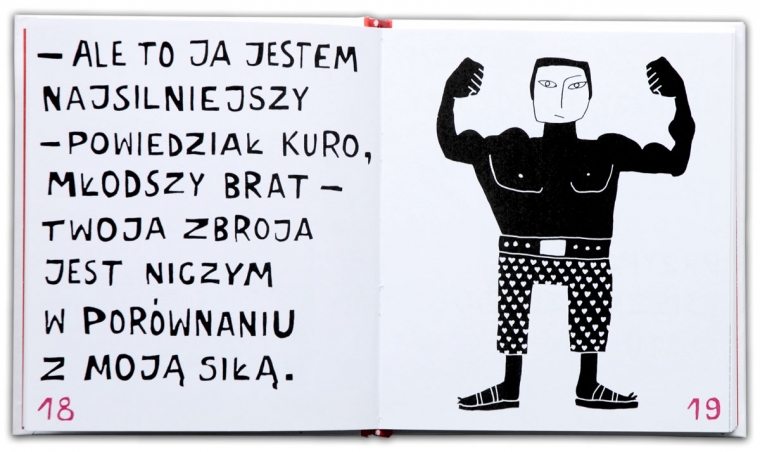 – ALE TO JA JESTEM
NAJSILNIEJSZY
– POWIEDZIAŁ KURO,
MŁODSZY BRAT –
TWOJA ZBROJA
JEST NICZYM
W PORÓWNANIU
Z MOJĄ SIŁĄ.
18
19